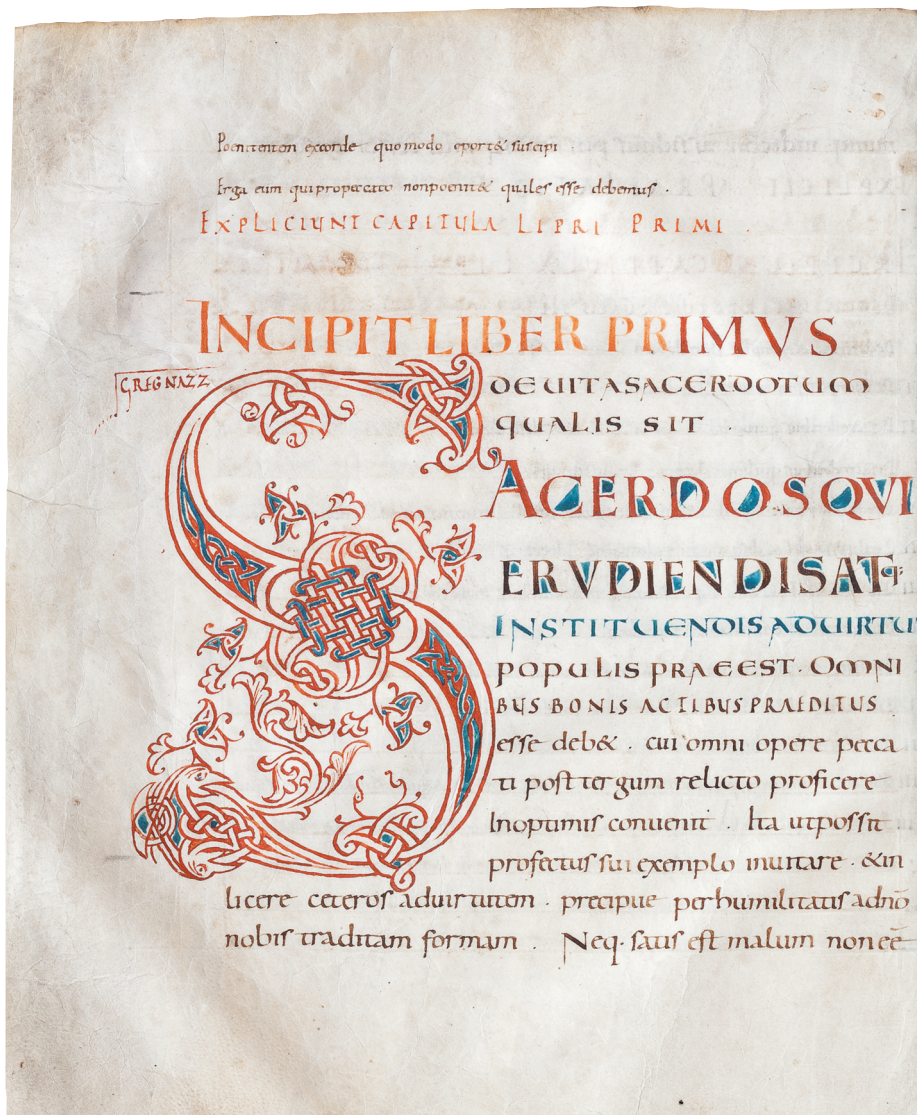 Poenitentem excorde quomodo oport& suscipi
Erga eum quipropeccato nonpoenit& quales esse debemus .
EXPLICIUNT CAPITULA LIPRI PRIMI .
INCIPIT LIBER PRIMVS
GREG NAZZ
DE UITASACERDOTUM
QUALIS SIT
SACERDOS QVI
ERVDIENDIS AT
INSTITUENDIS ADUIRTU
POPULIS PRAEEST · OMNI
BUS BONIS ACTIBUS PRAEDITUS
esse deb& . cui omni opere pecca
ti post tergum relicto proficere
Inoptimis conuenit . Ita utpossit
profectus sui exemplo inuitare · &in
licere ceteros aduirtutem . precipue perhumilitatis adnō
nobis traditam formam . Neq· satis est malum non eē